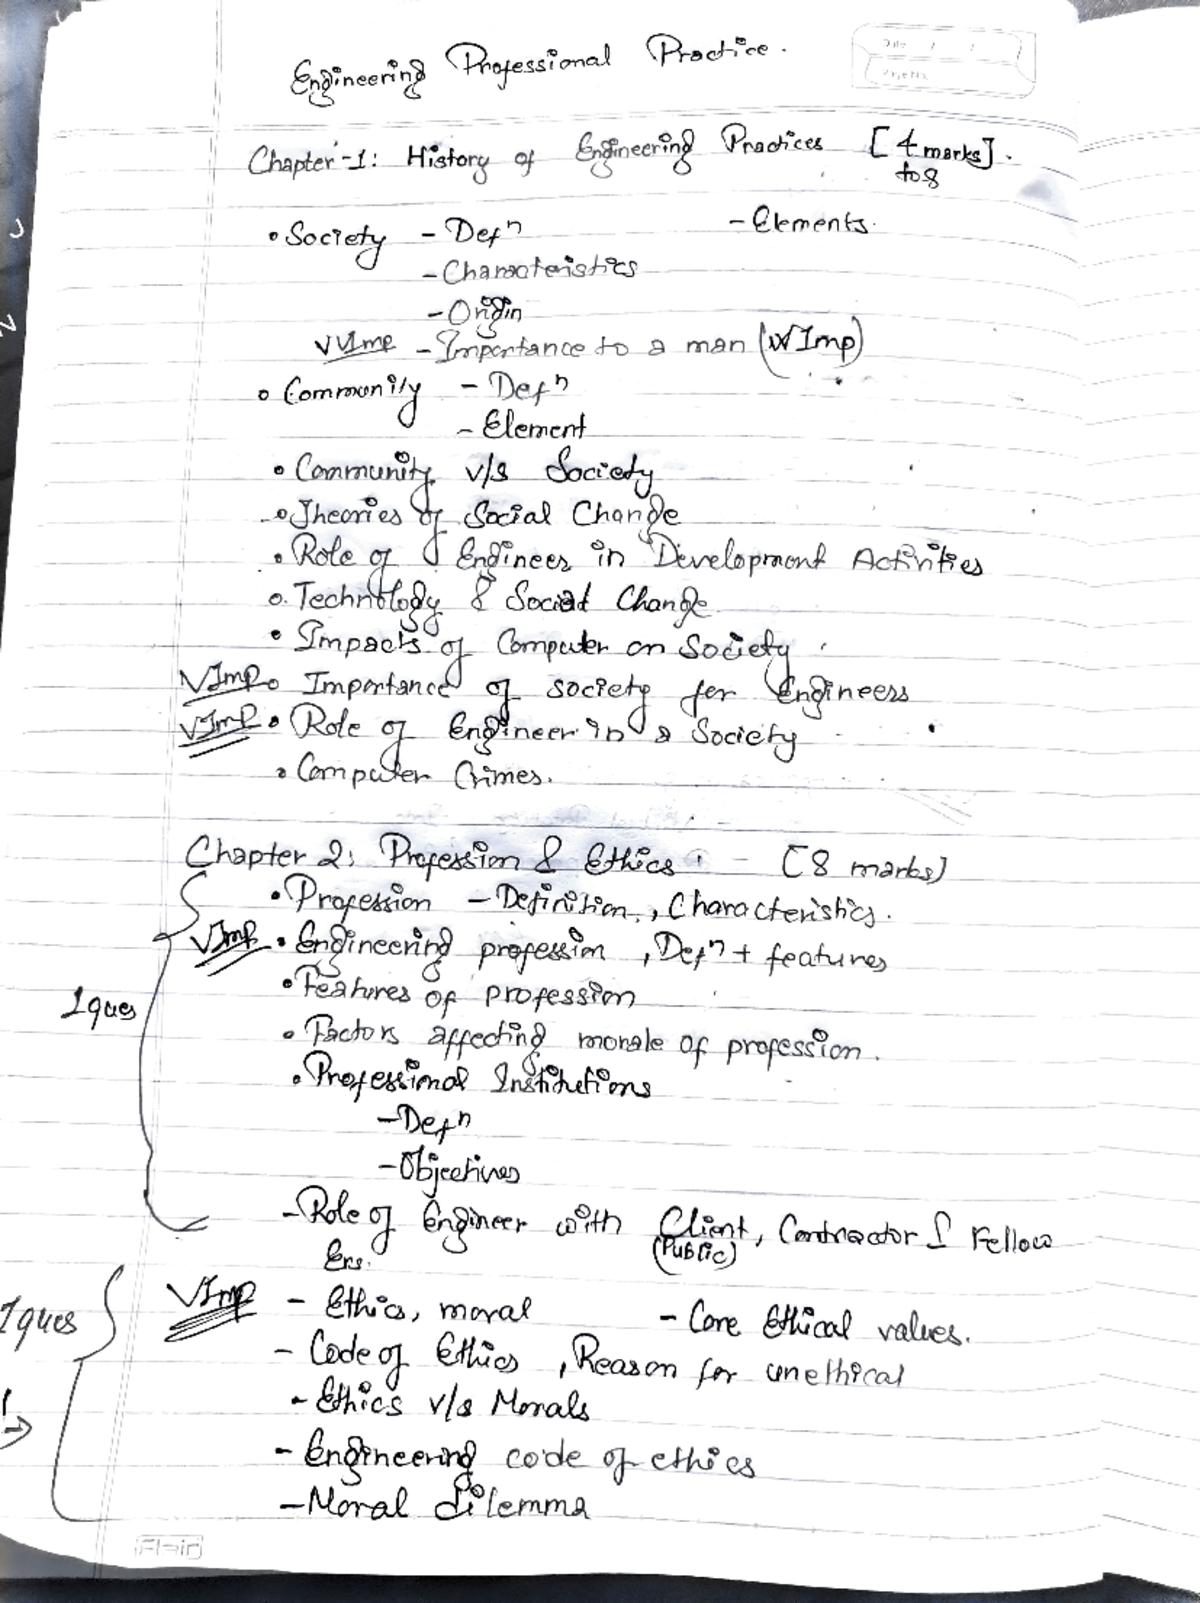 Engineering Professional Practice.
Date / /
Page No.
Chapter-1: History of Engineering Practices [4 marks].
to 8
• Society - Defⁿ - Elements.
- Characteristics
- Origin
VVImp - Importance to a man (VVImp)
• Community - Defⁿ
- Element
• Community v/s Society
• Theories of Social Change
• Role of Engineer in Development Activities
• Technology & Social Change
• Impacts of Computer on Society
VImp • Importance of society for Engineers
VImp • Role of Engineer in a Society
• Computer Crimes.
Chapter 2: Profession & Ethics - [8 marks]
• Profession - Definition, Characteristics.
VImp • Engineering profession, Defⁿ + features
• Features of profession
1ques
• Factors affecting morale of profession.
• Professional Institutions
- Defⁿ
- Objectives
- Role of Engineer with Client, Contractor & Fellow
(Public)
Ers.
1ques VImp - Ethics, moral - Core Ethical values.
- Code of Ethics, Reason for unethical
- Ethics v/s Morals
- Engineering code of ethics
- Moral dilemma